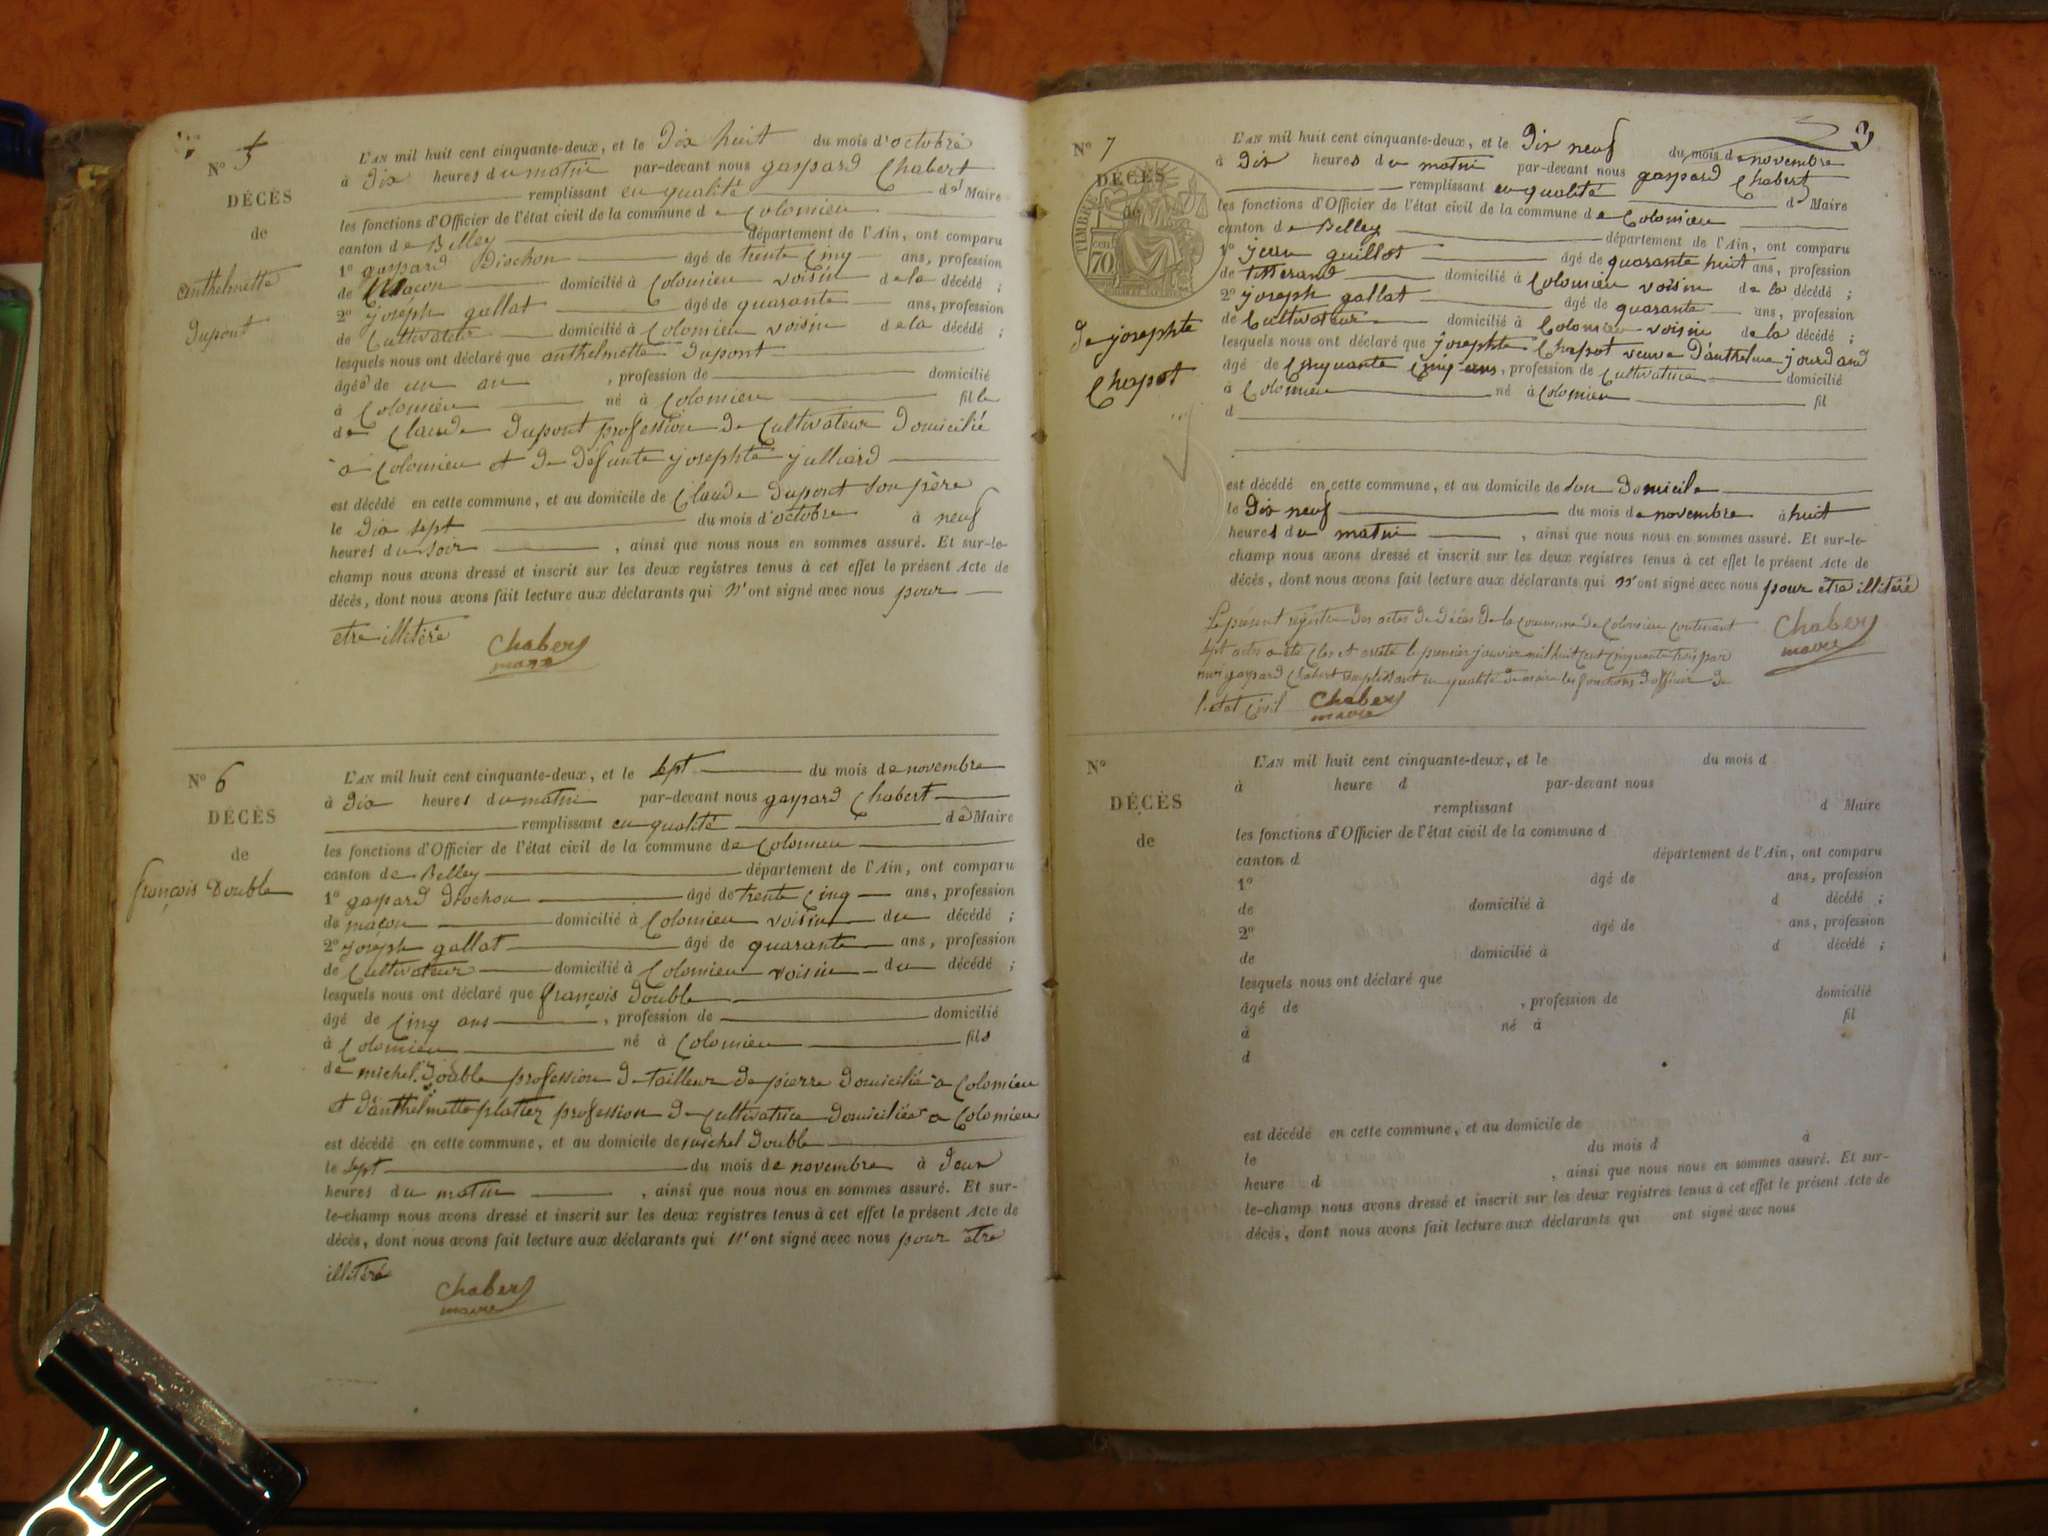 N° 5
DÉCÈS
de
anthelmette
dupont
L'AN mil huit cent cinquante-deux, et le Dix huit du mois d'octobre
à Dix heures du matin par-devant nous gaspard Chabert
remplissant en qualité de Maire
les fonctions d'Officier de l'état civil de la commune de Colomieu
canton de Belley département de l'Ain, ont comparu
1° gaspard Diochon âgé de trente cinq ans, profession
de Maçon domicilié à Colomieu voisin de la décédé ;
2° joseph gallat âgé de quarante ans, profession
de Cultivateur domicilié à Colomieu voisin de la décédé ;
lesquels nous ont déclaré que anthelmette dupont
âgée de un an , profession de domicilié
à Colomieu né à Colomieu fille
de Claude Dupont profession de Cultivateur Domicilié
a Colomieu et de défunte josephte julliard
est décédé en cette commune, et au domicile de Claude Dupont son père
le dix sept du mois d'octobre à neuf
heures du soir , ainsi que nous nous en sommes assuré. Et sur-le-
champ nous avons dressé et inscrit sur les deux registres tenus à cet effet le présent Acte de
décès, dont nous avons fait lecture aux déclarants qui n'ont signé avec nous pour
etre illitéré Chabert
maire
N° 6
DÉCÈS
de
françois Double
L'AN mil huit cent cinquante-deux, et le sept du mois de novembre
à Dix heures du matin par-devant nous gaspard Chabert
remplissant en qualité de Maire
les fonctions d'Officier de l'état civil de la commune de Colomieu
canton de Belley département de l'Ain, ont comparu
1° gaspard Diochon âgé de trente cinq ans, profession
de maçon domicilié à Colomieu voisin du décédé ;
2° joseph gallat âgé de quarante ans, profession
de Cultivateur domicilié à Colomieu voisin du décédé ;
lesquels nous ont déclaré que françois Double
âgé de cinq ans , profession de domicilié
à Colomieu né à Colomieu fils
de michel Double profession de tailleur de pierre domicilié a Colomieu
et d'anthelmette platier profession de cultivatrice domiciliée a Colomieu
est décédé en cette commune, et au domicile de michel Double
le sept du mois de novembre à deux
heures du matin , ainsi que nous nous en sommes assuré. Et sur-
le-champ nous avons dressé et inscrit sur les deux registres tenus à cet effet le présent Acte de
décès, dont nous avons fait lecture aux déclarants qui n'ont signé avec nous pour etre
illitéré
Chabert
maire
3
N° 7
DÉCÈS
de
TIMBRE
70
de josephte
Chapot
L'AN mil huit cent cinquante-deux, et le Dix neuf du mois de novembre
à Dix heures du matin par-devant nous gaspard Chabert
remplissant en qualité d Maire
les fonctions d'Officier de l'état civil de la commune de Colomieu
canton de Belley département de l'Ain, ont comparu
1° jean guillot âgé de quarante huit ans, profession
de tisserand domicilié à Colomieu voisin de la décédé ;
2° joseph gallat âgé de quarante ans, profession
de Cultivateur domicilié à Colomieu voisin de la décédé ;
lesquels nous ont déclaré que josephte Chapot veuve d'anthelme jourdand
âgé de cinquante cinq ans, profession de cultivatrice domicilié
à Colomieu né à Colomieu fil
d
est décédé en cette commune, et au domicile de son domicile
le Dix neuf du mois de novembre à huit
heures du matin , ainsi que nous nous en sommes assuré. Et sur-le-
champ nous avons dressé et inscrit sur les deux registres tenus à cet effet le présent Acte de
décès, dont nous avons fait lecture aux déclarants qui n'ont signé avec nous pour etre illitéré
Le présent registre des actes de décès de la Commune de Colomieu contenant
sept actes a été clos et arrêté le premier janvier mil huit cent cinquante trois par
moi gaspard Chabert remplissant en qualité de maire les fonctions d'officier de
l'etat civil Chabert
maire
Chabert
maire
N°
DÉCÈS
de
L'AN mil huit cent cinquante-deux, et le du mois d
à heure d par-devant nous
remplissant d Maire
les fonctions d'Officier de l'état civil de la commune d
canton d département de l'Ain, ont comparu
1° âgé de ans, profession
de domicilié à d décédé ;
2° âgé de ans, profession
de domicilié à d décédé ;
lesquels nous ont déclaré que
âgé de , profession de domicilié
à né à fil
d
est décédé en cette commune, et au domicile de
le du mois d à
heure d , ainsi que nous nous en sommes assuré. Et sur-
le-champ nous avons dressé et inscrit sur les deux registres tenus à cet effet le présent Acte de
décès, dont nous avons fait lecture aux déclarants qui ont signé avec nous